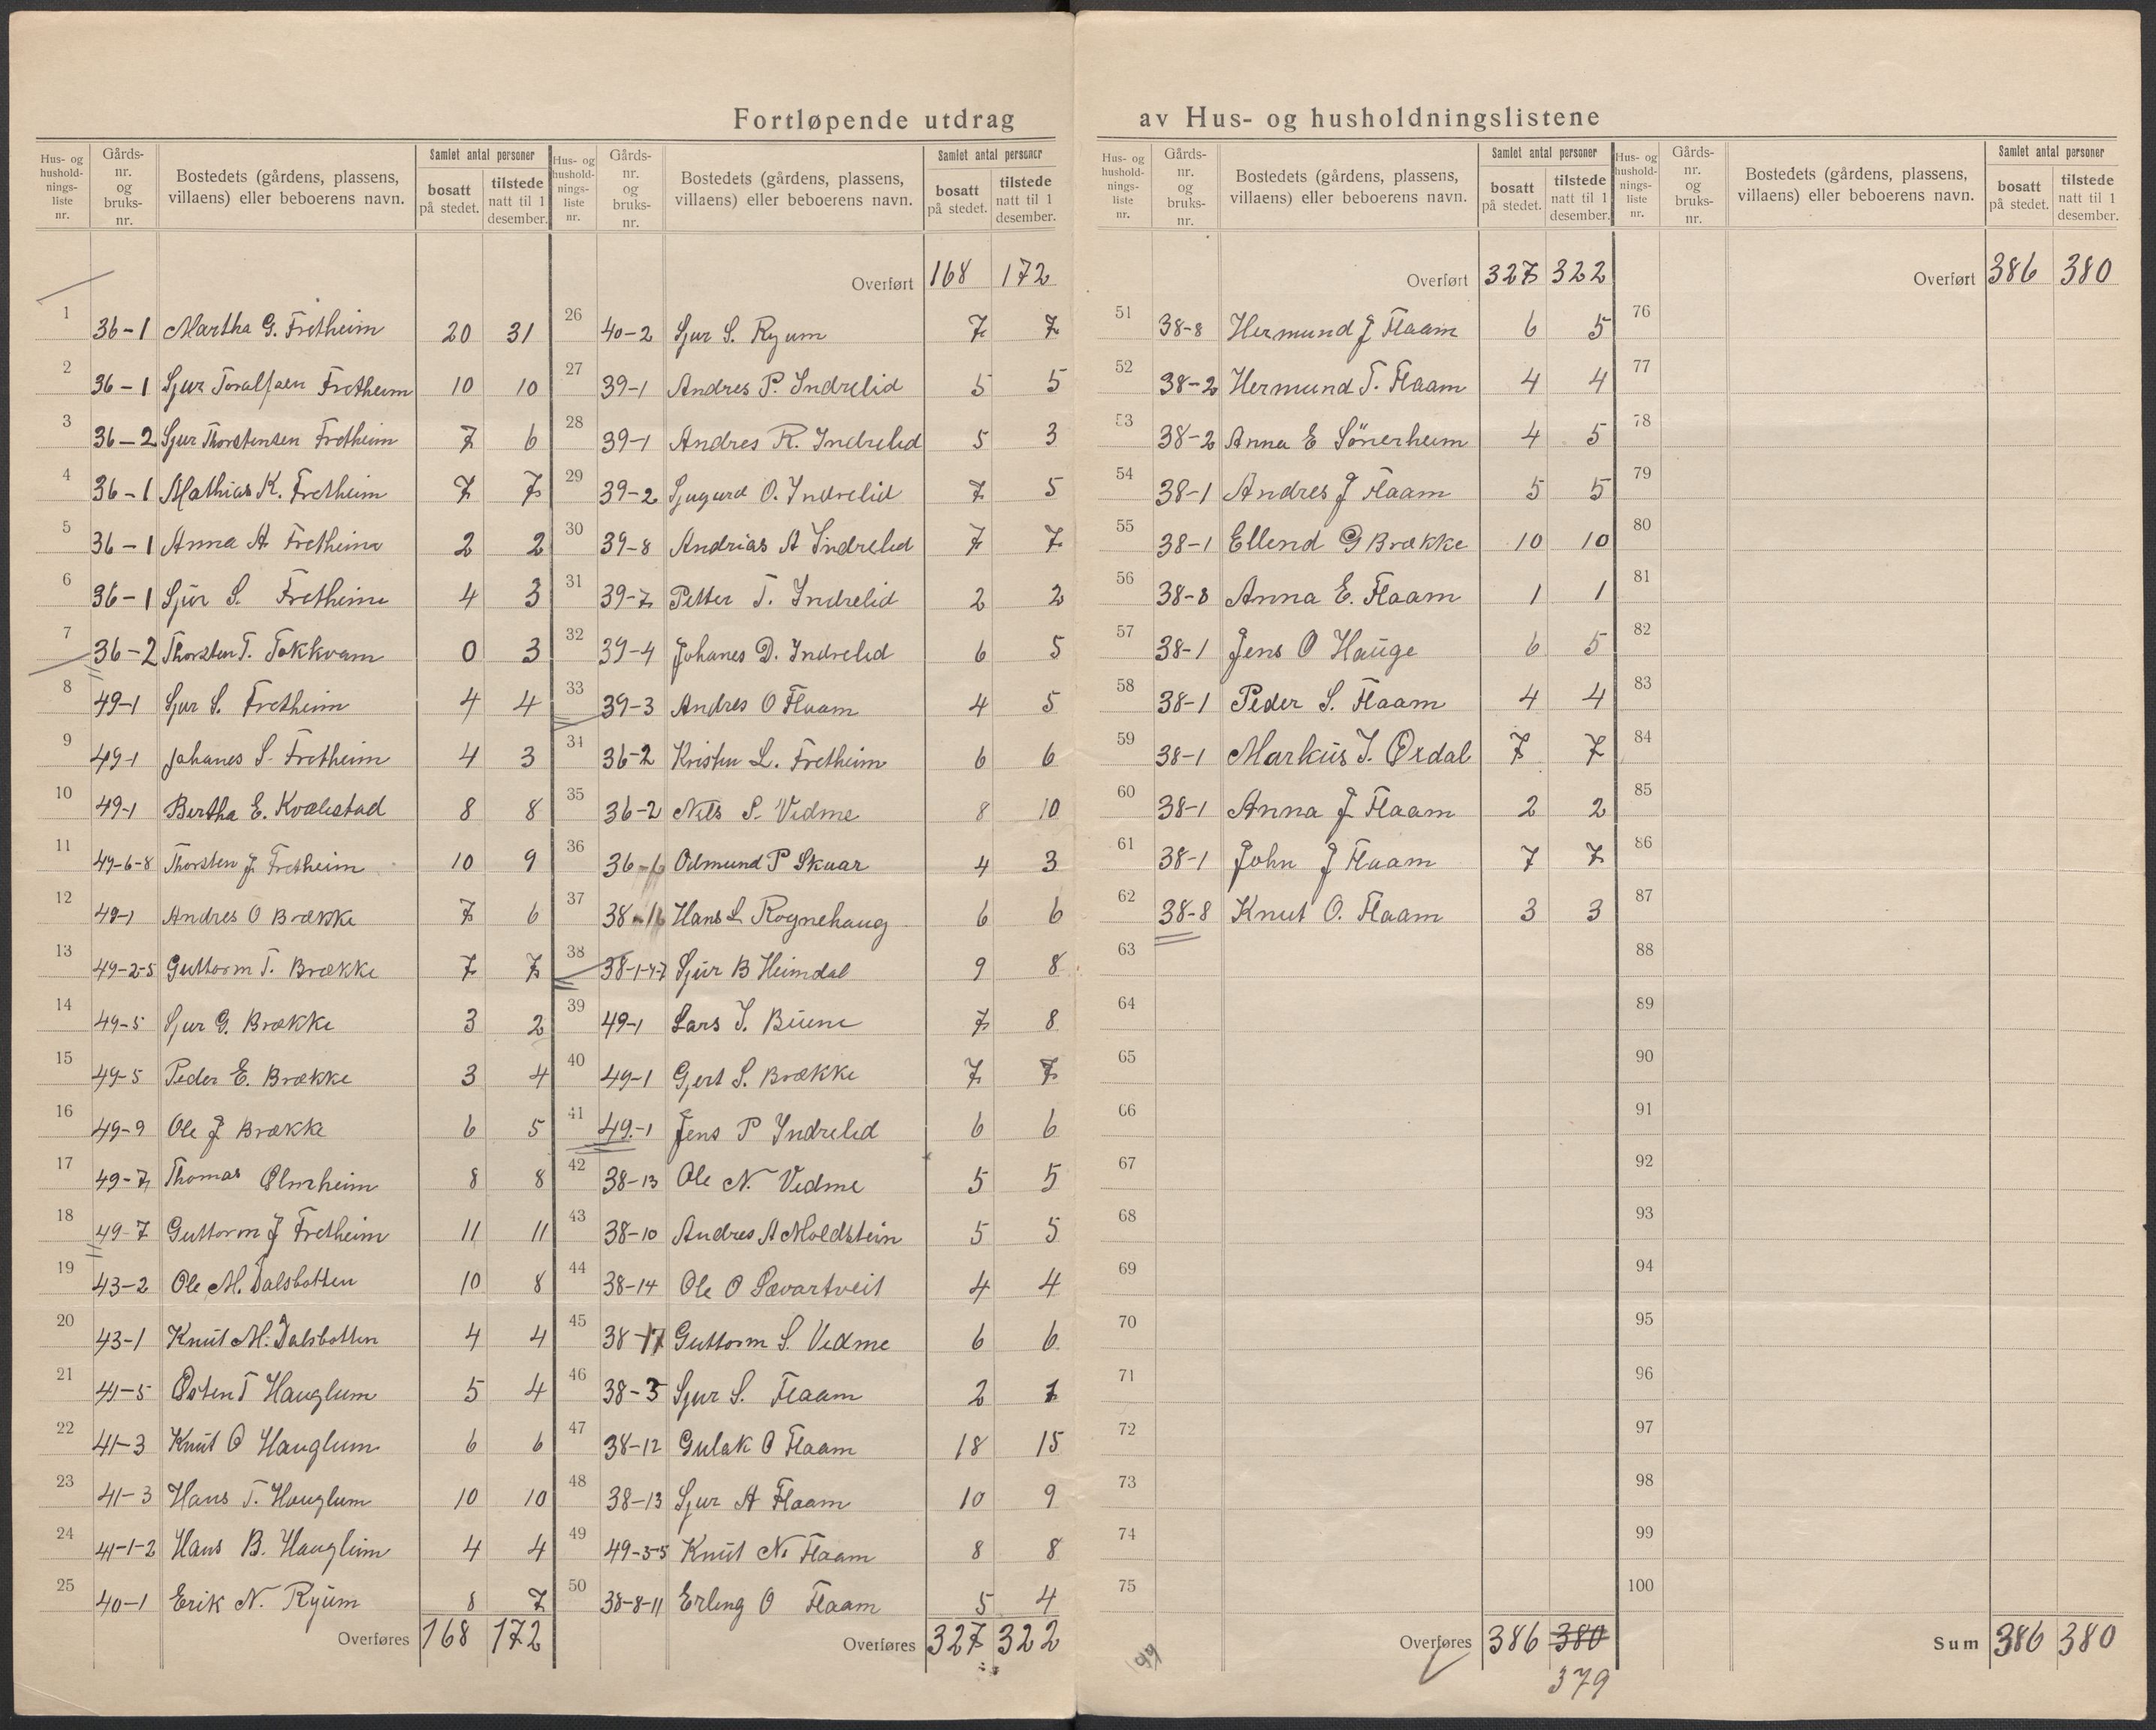 Fortløpende utdrag av Hus- og husholdningslistene
Hus- og husholdnings-liste nr. | Gårds-nr. og bruks-nr. | Bostedets (gårdens, plassens, villaens) eller beboerens navn. | Samlet antal personer | bosatt på stedet. | tilstede natt til 1 desember.
1 36-1 Martha G. Fretheim 20 31
2 36-1 Sjur Toralfsen Fretheim 10 10
3 36-2 Sjur Thorstensen Fretheim 7 6
4 36-1 Mathias K. Fretheim 7 7
5 36-1 Anna A Fretheim 2 2
6 36-1 Sjur S. Fretheim 4 3
7 36-2 Thorsten T. Tokkvam 0 3
8 49-1 Sjur S. Fretheim 4 4
9 49-1 Johanes S. Fretheim 4 3
10 49-1 Bertha E. Kvalestad 8 8
11 49-6-8 Thorsten J Fretheim 10 9
12 49-1 Andres O Brække 7 6
13 49-2-5 Guttorm T. Brække 7 7
14 49-5 Sjur G. Brække 3 2
15 49-5 Peder E. Brække 3 4
16 49-9 Ole J Brække 6 5
17 49-7 Thomas 8 8
18 49-7 Guttorm J Fretheim 11 11
19 43-2 Ole M. Dalsbotten 10 8
20 43-1 Knut M. Dalsbotten 4 4
21 41-5 Østen T Hauglum 5 4
22 41-3 Knut O Hauglum 6 6
23 41-3 Hans T. Hauglum 10 10
24 41-1-2 Hans B. Hauglum 4 4
25 40-1 Erik N. Ryum 8 7
Overføres 168 172
Hus- og husholdnings-liste nr. | Gårds-nr. og bruks-nr. | Bostedets (gårdens, plassens, villaens) eller beboerens navn. | Samlet antal personer | bosatt på stedet. | tilstede natt til 1 desember.
Overført 168 172
26 40-2 Sjur S. Ryum 7 7
27 39-1 Andres P. Indrelid 5 5
28 39-1 Andres R. Indrelid 5 3
29 39-2 Sjugurd O. Indrelid 7 5
30 39-8 Andrias A Indrelid 7 7
31 39-7 Petter T. Indrelid 2 2
32 39-4 Johanes D. Indrelid 6 5
33 39-3 Andres O Flaam 4 5
34 36-2 Kristen L. Fretheim 6 6
35 36-2 Nils S. Vidme 8 10
36 36-6 Odmund P Skaar 4 3
37 38-16 Hans L Rognehaug 6 6
38 38-1-4-7 Sjur B Heimdal 9 8
39 49-1 Lars J. Buene 7 8
40 49-1 Gjert S. Brække 7 7
41 49-1 Jens P Indrelid 6 6
42 38-13 Ole N. Vidme 5 5
43 38-10 Andres A Moldstein 5 5
44 38-14 Ole O Sævartveit 4 4
45 38-17 Guttorm S. Vidme 6 6
46 38-3 Sjur S. Flaam 2 1
47 38-12 Gulak O Flaam 18 15
48 38-13 Sjur A Flaam 10 9
49 49-3-5 Knut N. Flaam 8 8
50 38-8-11 Erling O Flaam 5 4
Overføres 327 322
Hus- og husholdnings-liste nr. | Gårds-nr. og bruks-nr. | Bostedets (gårdens, plassens, villaens) eller beboerens navn. | Samlet antal personer | bosatt på stedet. | tilstede natt til 1 desember.
Overført 327 322
51 38-8 Hermund J Flaam 6 5
52 38-2 Hermund T. Flaam 4 4
53 38-2 Anna E Sönerheim 4 5
54 38-1 Andres J Flaam 5 5
55 38-1 Ellend G Brække 10 10
56 38-8 Anna E. Flaam 1 1
57 38-1 Jens O Hauge 6 5
58 38-1 Peder S. Flaam 4 4
59 38-1 Markus J. Oxdal 7 7
60 38-1 Anna J Flaam 2 2
61 38-1 John J Flaam 7 7
62 38-8 Knut O. Flaam 3 3
63
64
65
66
67
68
69
70
71
72
73
74
75
Overføres 386 380
379
99
Hus- og husholdnings-liste nr. | Gårds-nr. og bruks-nr. | Bostedets (gårdens, plassens, villaens) eller beboerens navn. | Samlet antal personer | bosatt på stedet. | tilstede natt til 1 desember.
Overført 386 380
76
77
78
79
80
81
82
83
84
85
86
87
88
89
90
91
92
93
94
95
96
97
98
99
100
Sum 386 380